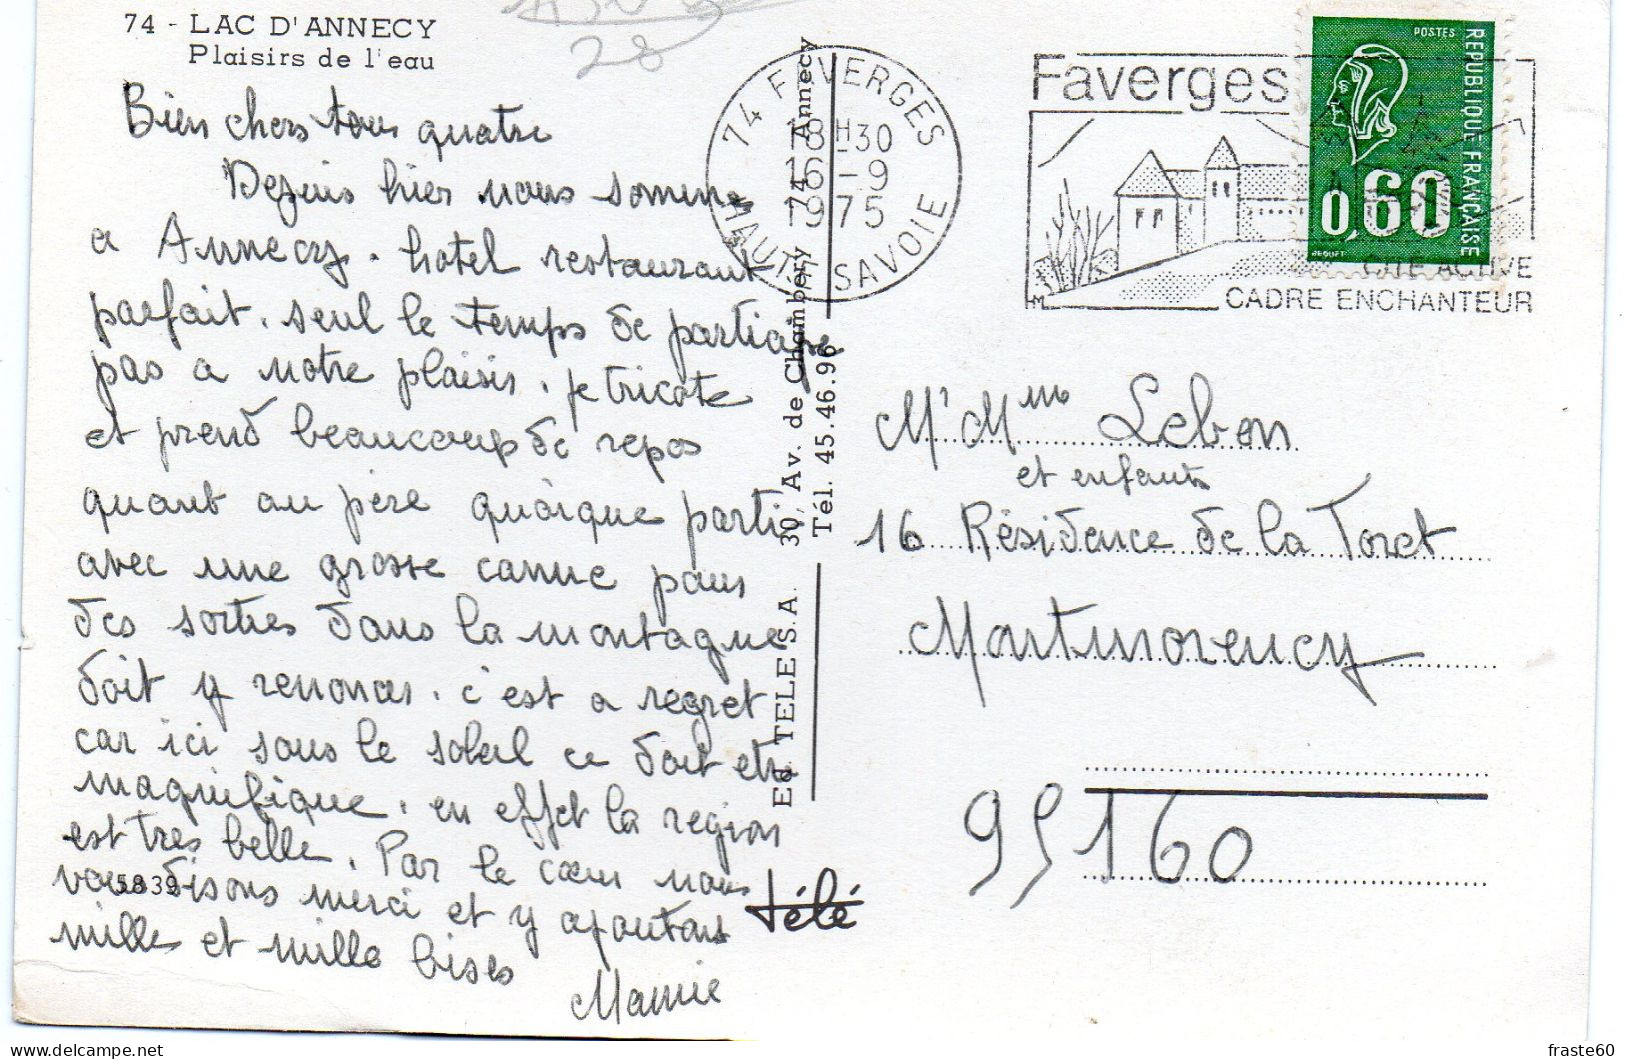 74 - LAC D'ANNECY
Plaisirs de l'eau
28
Bien chers tous quatre
Depuis hier nous somme
a Annecy. hotel restaurant
parfait. seul le temps de participe
pas a notre plaisir. je tricote
et prend beaucoup de repos
quant au père quoique parti
avec une grosse canne pour
des sorties dans la montagne
doit y renoncer. c'est a regret
car ici sous le soleil ce doit etre
magnifique. en effet la region
est tres belle. Par le cœur nous
vous disons merci et y ajoutons
mille et mille bises
Mamie
5839
Ed. TELE S.A. 30, Av. de Chambéry 74 Annecy
Tél. 45.46.96
télé
74 FAVERGES
18H30
16-9
1975
HAUTE SAVOIE
Faverges
CITE ACTIVE
CADRE ENCHANTEUR
POSTES
REPUBLIQUE FRANÇAISE
0,60
BEQUET
Mr Mme Lebon
et enfants
16 Résidence de la Foret
Montmorency
95160
fraste60